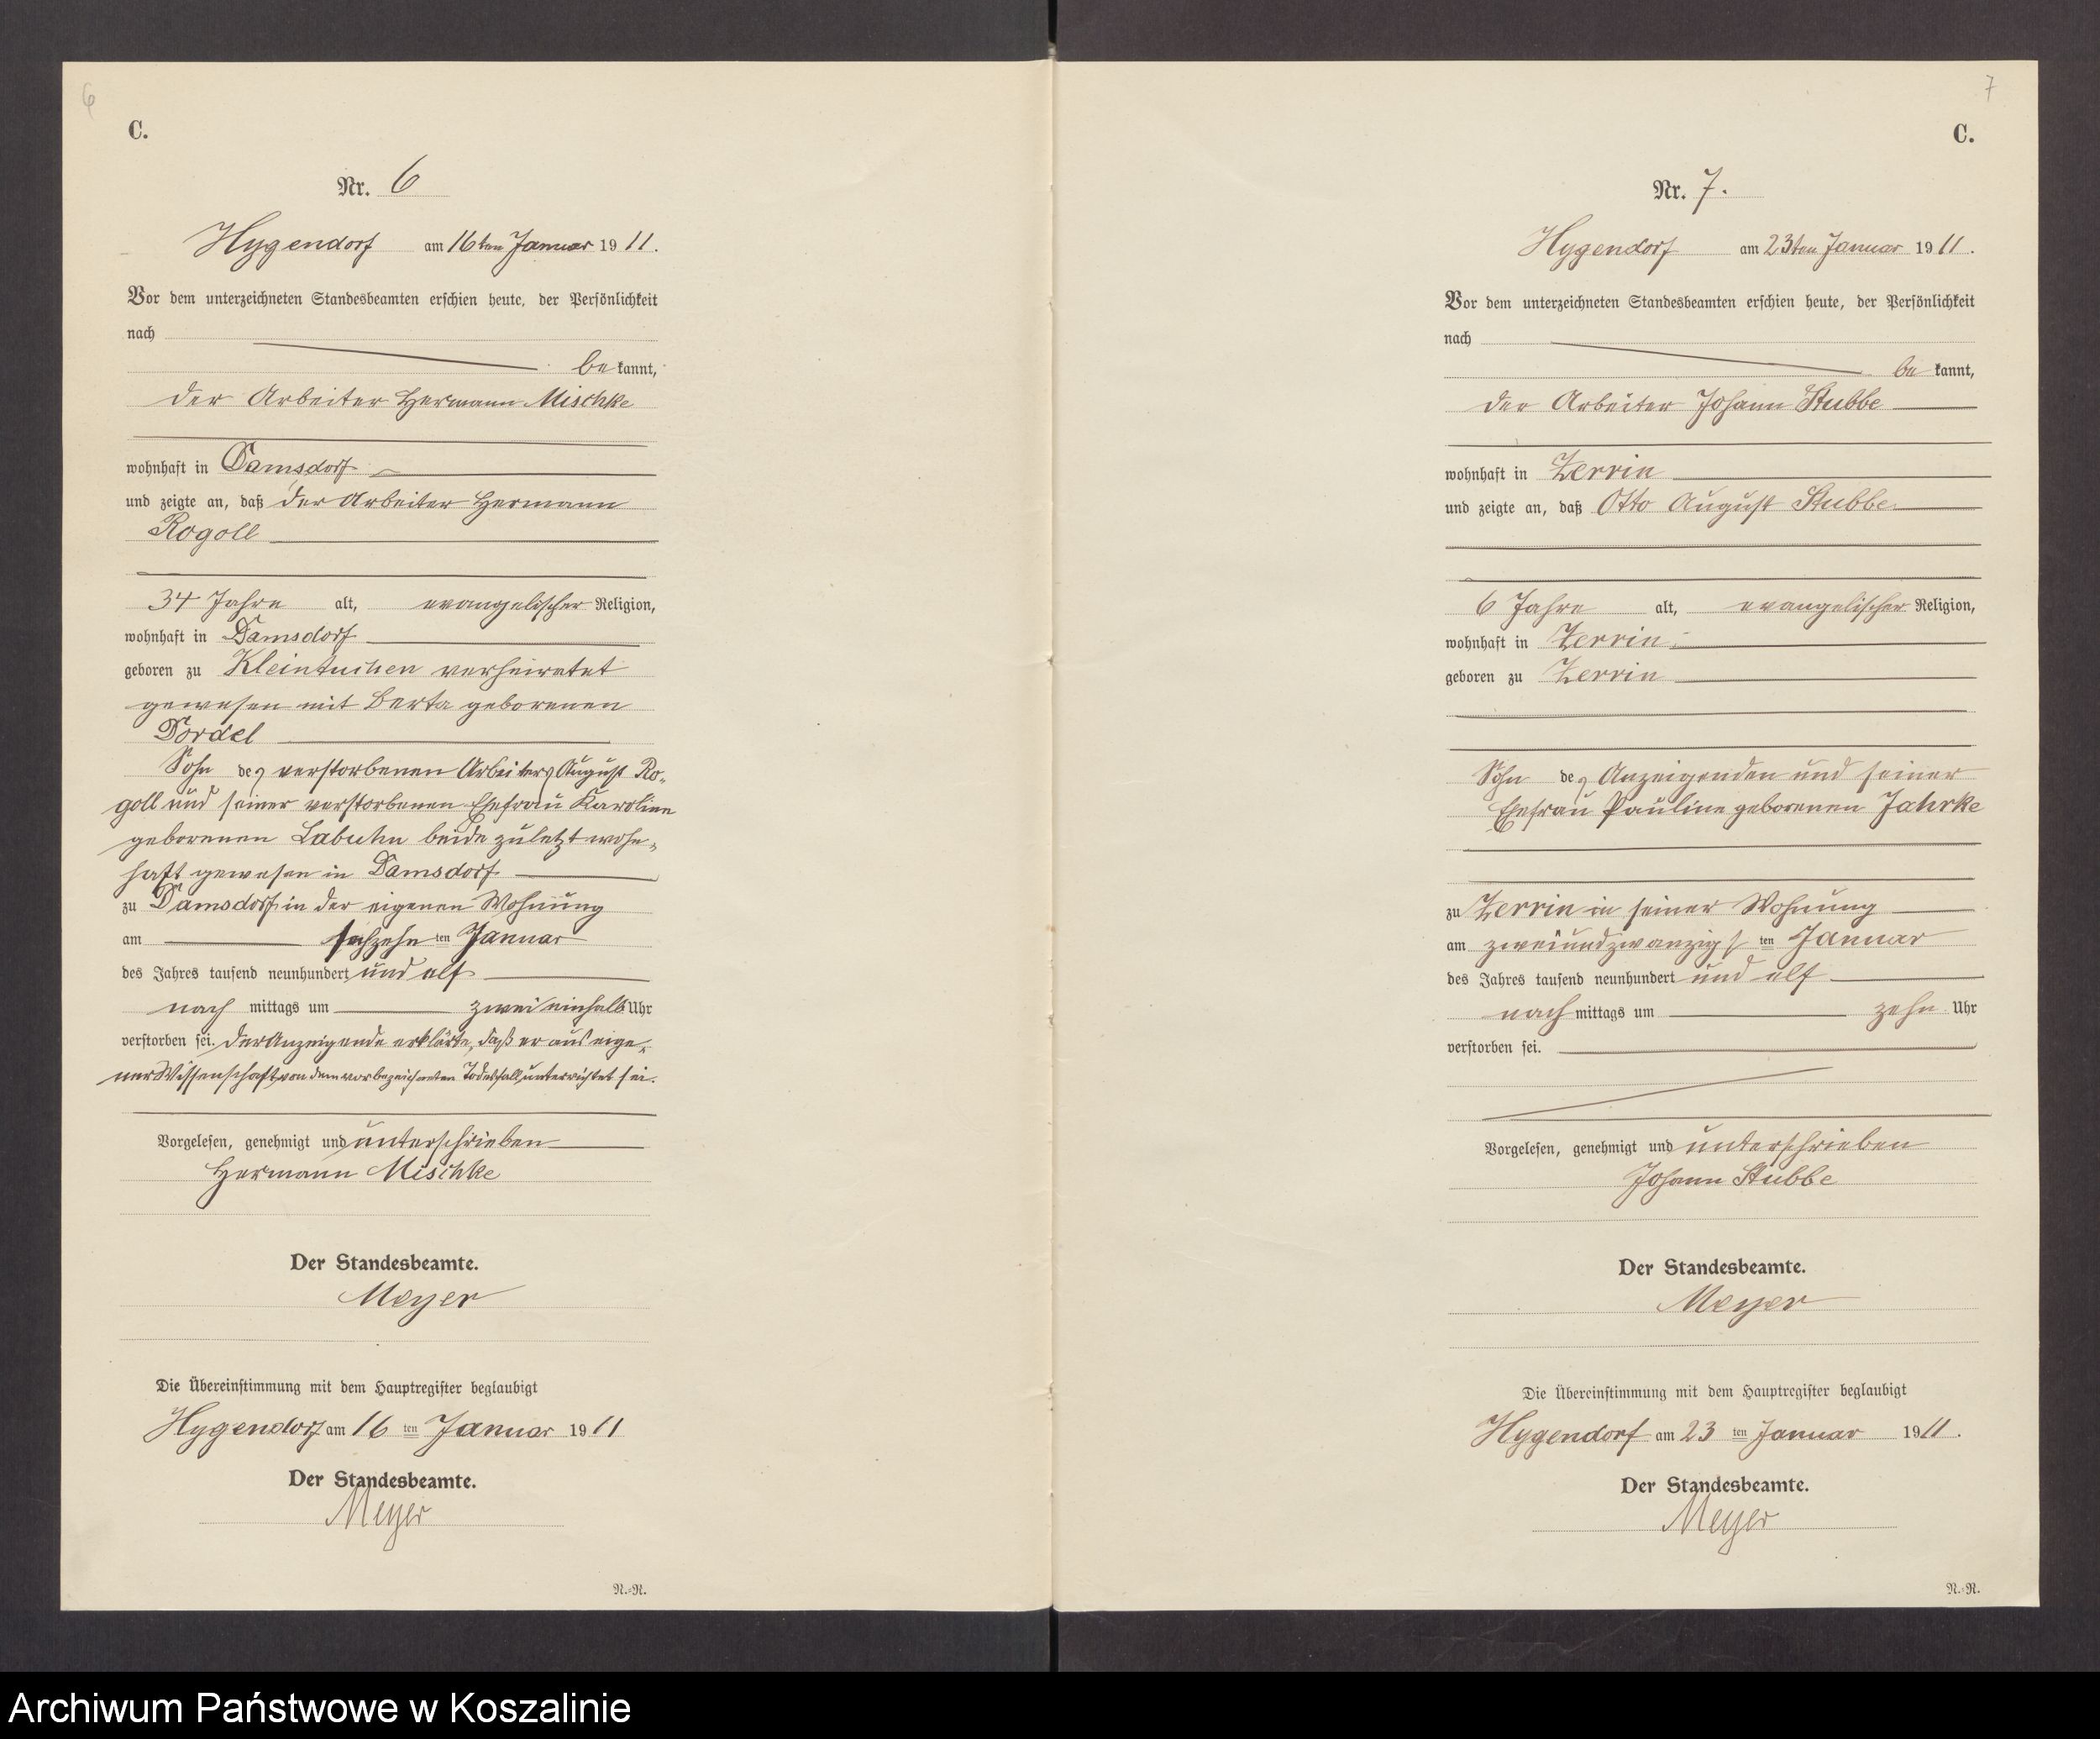 6
C.
Nr. 6
Hygendorf am 16ten Januar 1911.
Vor dem unterzeichneten Standesbeamten erschien heute, der Persönlichkeit
nach
be kannt,
der Arbeiter Hermann Mischke
wohnhaft in Damsdorf
und zeigte an, daß der Arbeiter Hermann
Rogoll
34 Jahre alt, evangelischer Religion,
wohnhaft in Damsdorf
geboren zu Kleintuchen verheiratet
gewesen mit Berta geborenen
Dordel
Sohn des verstorbenen Arbeiters August Ro-
goll und seiner verstorbenen Ehefrau Karoline
geborenen Labuhn beide zuletzt wohn-
haft gewesen in Damsdorf
zu Damsdorf in der eigenen Wohnung
am sechzehn ten Januar
des Jahres tausend neunhundert und elf
nach mittags um zwei einhalb Uhr
verstorben sei. Der Anzeigende erklärte, daß er aus eige-
ner Wissenschaft von dem vorbezeichneten Todesfall unterrichtet sei.
Vorgelesen, genehmigt und unterschrieben
Hermann Mischke
Der Standesbeamte.
Meyer
Die Übereinstimmung mit dem Hauptregister beglaubigt
Hygendorf am 16 ten Januar 1911
Der Standesbeamte.
Meyer
N.-N.
7
C.
Nr. 7.
Hygendorf am 23ten Januar 1911.
Vor dem unterzeichneten Standesbeamten erschien heute, der Persönlichkeit
nach
be kannt,
der Arbeiter Johann Stubbe
wohnhaft in Zerrin
und zeigte an, daß Otto August Stubbe
6 Jahre alt, evangelischer Religion,
wohnhaft in Zerrin
geboren zu Zerrin
Sohn des Anzeigenden und seiner
Ehefrau Pauline geborenen Jahrke
zu Zerrin in seiner Wohnung
am zweiundzwanzigs ten Januar
des Jahres tausend neunhundert und elf
nach mittags um zehn Uhr
verstorben sei.
Vorgelesen, genehmigt und unterschrieben
Johann Stubbe
Der Standesbeamte.
Meyer
Die Übereinstimmung mit dem Hauptregister beglaubigt
Hygendorf am 23 ten Januar 1911.
Der Standesbeamte.
Meyer
N.-N.
Archiwum Państwowe w Koszalinie